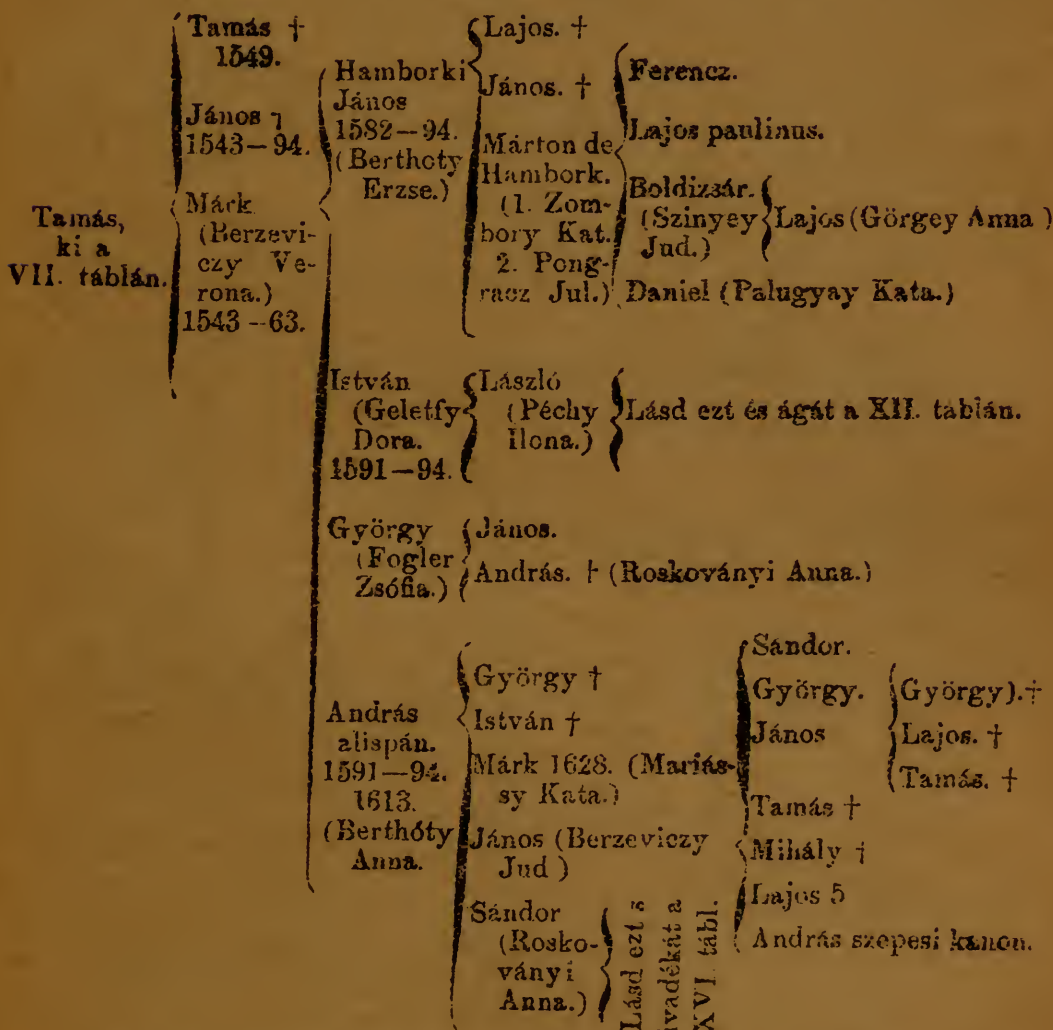 Tamás,
ki a
VII. táblán.
Tamás †
1549.
János ┐
1543–94.
Márk
(Berzevi-
czy Ve-
rona.)
1543–63.
Hamborki
János
1582–94.
(Berthoty
Erzse.)
Lajos. †
János. †
Márton de
Hambork.
(1. Zom-
bory Kat.
2. Pong-
racz Jul.)
Ferencz.
Lajos paulinus.
Boldizsár.
(Szinyey
Jud.)
Lajos (Görgey Anna)
Daniel (Palugyay Kata.)
István
(Geletfy
Dora.
1591–94.
László
(Péchy
Ilona.)
Lásd ezt és ágát a XII. táblán.
György
(Fogler
Zsófia.)
János.
András. † (Roskoványi Anna.)
András
alispán.
1591–94.
1613.
(Berthóty
Anna.
György †
István †
Márk 1628. (Mariás-
sy Kata.)
János (Berzeviczy
Jud)
Sándor
(Rosko-
ványi
Anna.)
Lásd ezt s
ivadékát a
XVI. tábl.
Sándor.
György.
János
Tamás †
György).†
Lajos. †
Tamás. †
Mihály †
Lajos 5
András szepesi kanon.